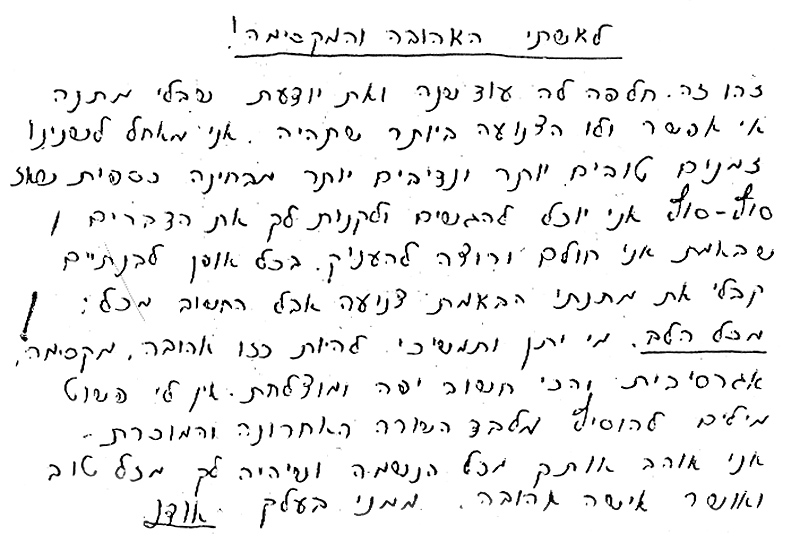 לאשתי האהובה והמקסימה!
זהו זה. חלפה לה עוד שנה ואת יודעת שבלי מתנה
אי אפשר ולו הצנועה ביותר שתהיה. אני מאחל לשנינו
זמנים טובים יותר ונדיבים יותר מבחינה כספית שאז
סוף-סוף אני יוכל להגשים ולקנות לך את הדברים
שבאמת אני חולם ורוצה להעניק. בכל אופן לבנתיים
קבלי את מתנתי הבאמת צנועה אבל החשוב מכל:
מכל הלב. מי יתן ותמשיכי להיות כזו אהובה, מקסימה,
אגרסיבית והכי חשוב יפה ומוצלחת. אין לי פשוט
מילים להוסיף מלבד השורה האחרונה והמוכרת -
אני אוהב אותך מכל הנשמה ושיהיה לך מזל טוב
ואושר אישה אהובה. ממני בעלך